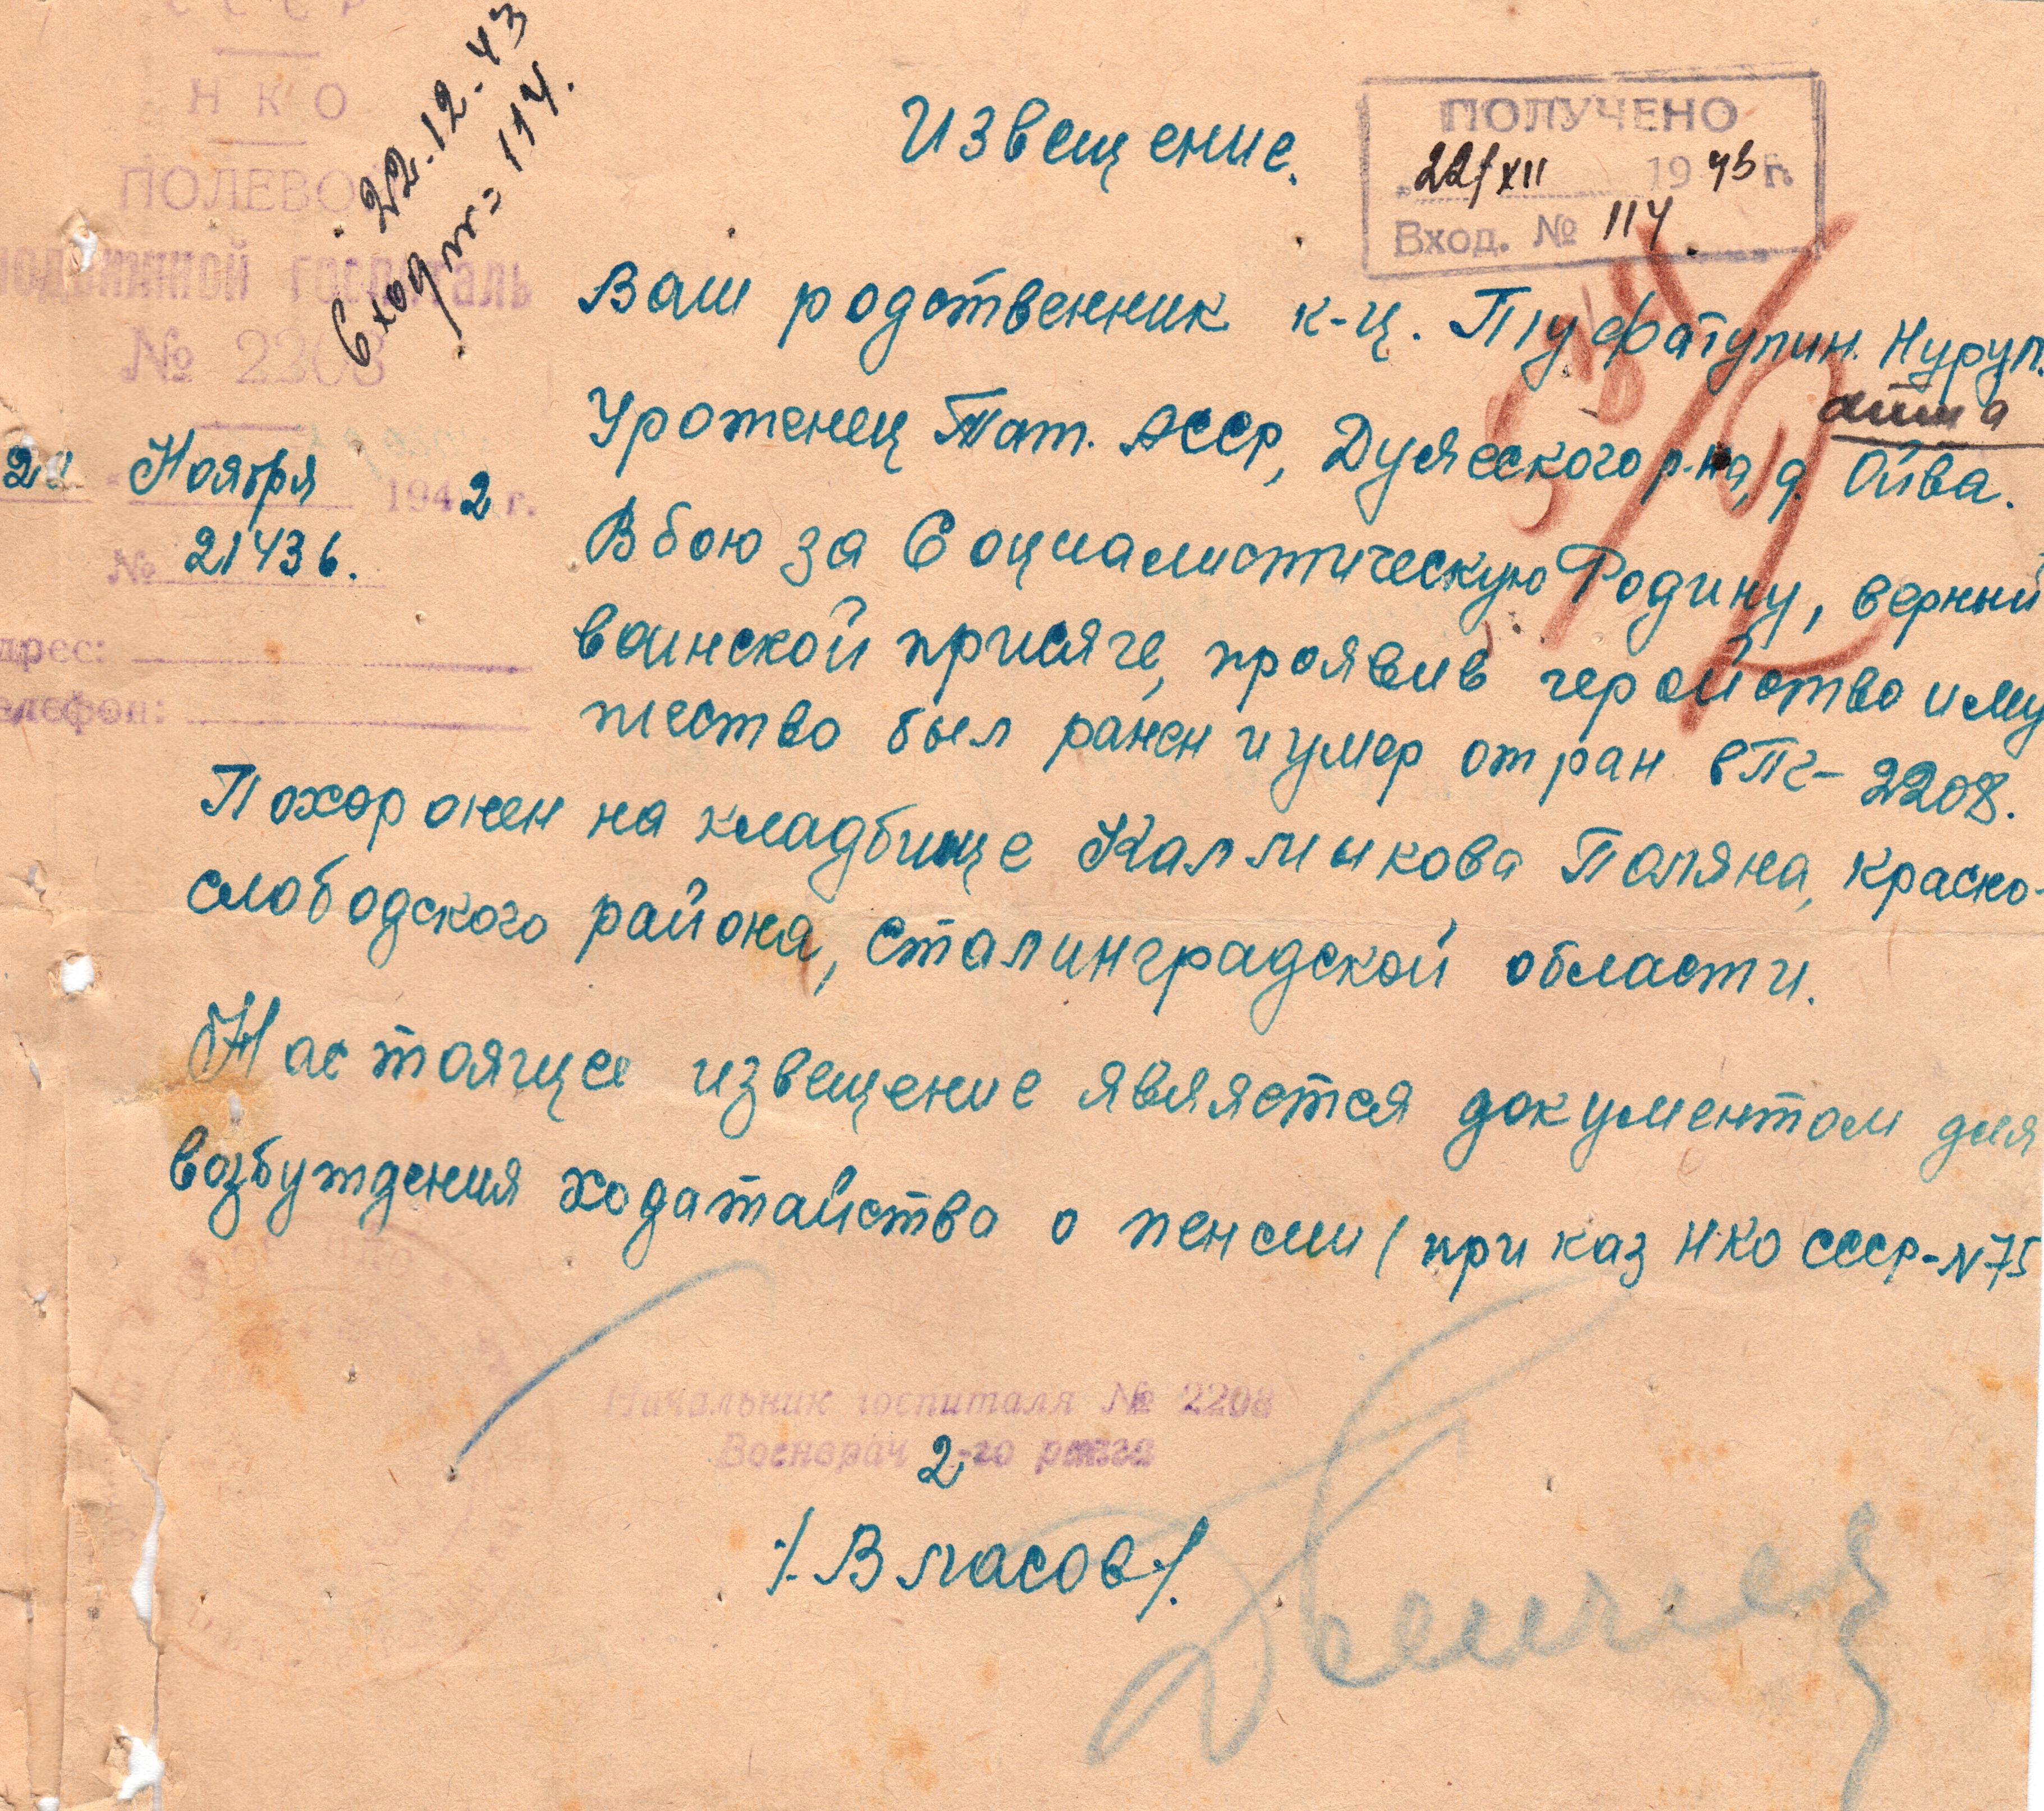 СССР
НКО
ПОЛЕВОЙ
подвижной госпиталь
№ 2208
Ноября 1942 г.
№ 21436.
дрес:
елефон:
22.12.43
Вход №= 114.
Извещение.
ПОЛУЧЕНО
22/XII 1943 г.
Вход. № 114
Ваш родственник к-ц. Нуруп.
Уроженец Тат. АССР, р-на, д. Ойва.
В бою за Социалистическую Родину, верный
воинской присяге, проявив геройство и му
жество был ранен и умер от ран в ПГ-2208.
Похоронен на кладбище Калмыкова Поляна, красно-
слободского района, Сталинградской области.
Настоящее извещение является документом для
возбуждения ходатайства о пенсии (приказ НКО СССР-N75
Начальник госпиталя № 2208
Военврач 2-го ранга
/.Власов/.